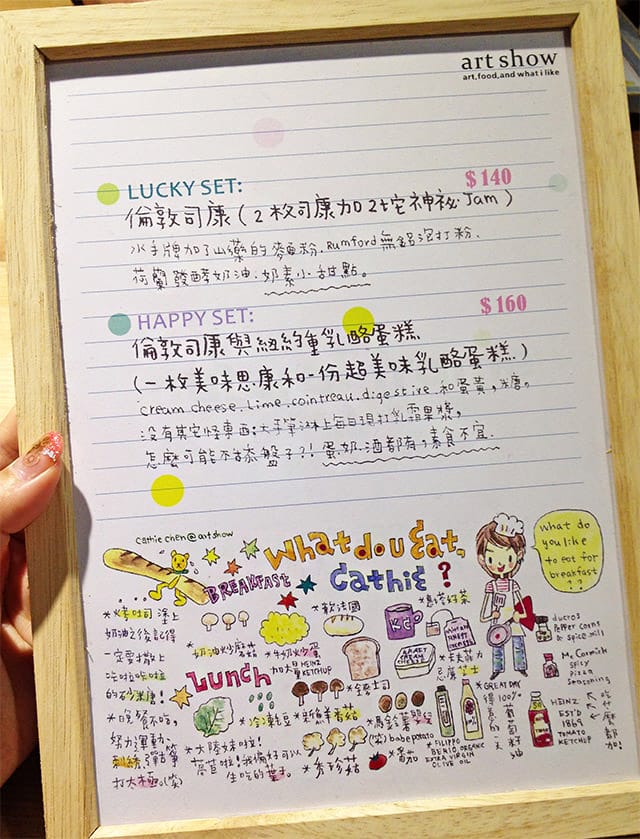 art show
art,food,and what i like
LUCKY SET:
$140
倫敦司康(2枚司康加2坨神祕Jam)
水手牌加了山藥的麥粉、Rumford無鋁泡打粉、
荷蘭發酵奶油、奶素小甜點。
HAPPY SET:
$160
倫敦司康與紐約重乳酪蛋糕
(一枚美味思康和一份超美味乳酪蛋糕)
cream cheese、lime、cointreau、digestive 和蛋黃,糖。
沒有其它怪東西;大手筆淋上每日現打乳霜果漿,
怎麼可能不舔盤子?! 蛋、奶、酒都有,素食不宜.
cathie chen@artshow
What do u Eat,
Cathie?
BREAKFAST
what do
you like
to eat for
breakfast
??
*烤吐司塗上
奶油之後記得
一定要撒上
的砂糖!
*奶油炒蘑菇
*軟法國
*牛奶炒蛋
加大量HEINZ
KETCHUP
KC
ducros
Pepper corns
& spice mill
Mc.Cormick
spicy
pizza
seasoning
HEINZ
EST'D
1869
TOMATO
KETCHUP
吃什麼都加!
*GREAT DAY
100%
葡萄籽油
得意的一天
Lunch
*晚餐不吃,
努力運動、
打太極。(笑)
*大陸妹啦!
萵苣啦!我偏好可以
生吃的葉子。
*冷凍豌豆
*全麥土司
*新鮮香菇
*秀珍菇
(笑) babe potato
*番茄
*FILIPPO
BERIO ORGANIC
EXTRA VIRGIN
OLIVE OIL